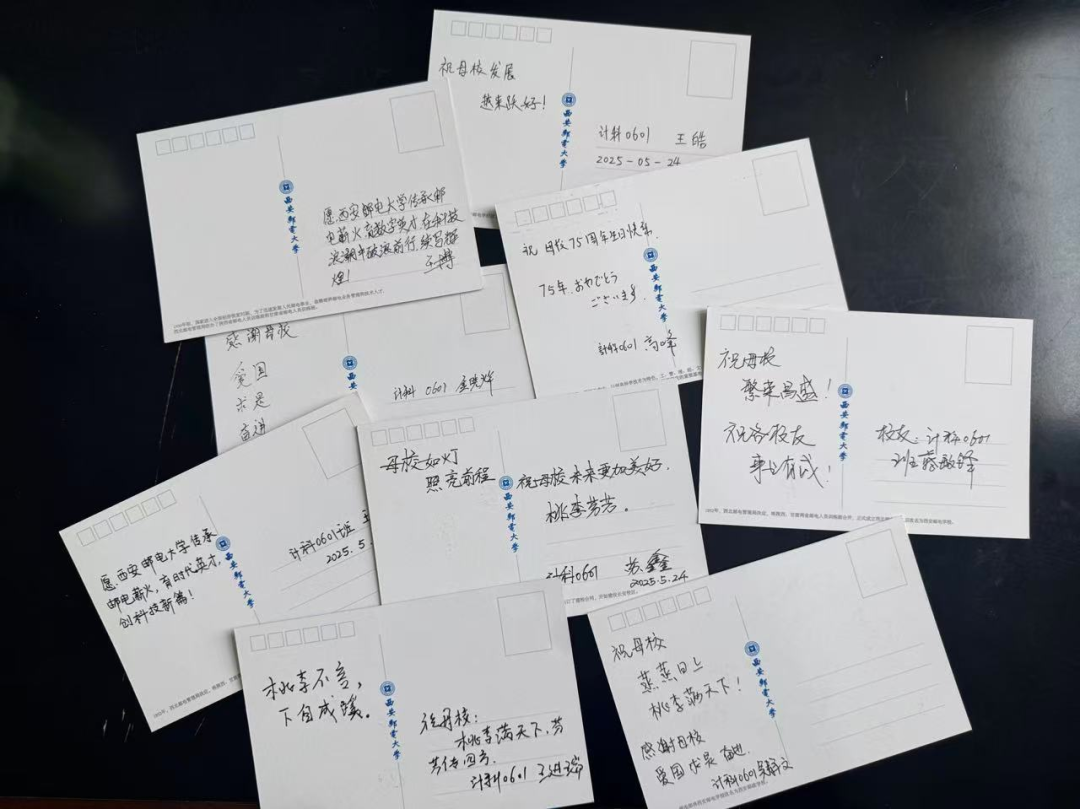 祝母校发展
越来跃好!
西安邮电大学
计科0601 王皓
2025-05-24
西安邮电大学
愿西安邮电大学传承邮
电薪火育数字英才,在科技
浪潮中破浪前行,续写辉
煌!
王博
祝 母校75周年生日快乐.
75年.おめでとう
ございます.
西安邮电大学
计科0601 高峰
感谢母校
爱国
求是
奋进
西安邮电大学
计科 0601
祝母校
繁荣昌盛!
祝各校友
事业有成!
西安邮电大学
校友:计科0601
母校如灯
照亮前程
西安邮电大学
祝母校未来更加美好.
桃李芳芳.
计科0601 苏鑫
2025.5.24
愿西安邮电大学传承
邮电薪火,育时代英才,
创科技新篇!
西安邮电大学
计科0601班 王
2025.5
桃李不言,
下自成蹊。
西安邮电大学
祝母校:
桃李满天下,芬
芳传四方.
计科0601 王进瑞
祝母校
蒸蒸日上
桃李满天下!
感谢母校
爱国 求是 奋进.
西安邮电大学
计科0601